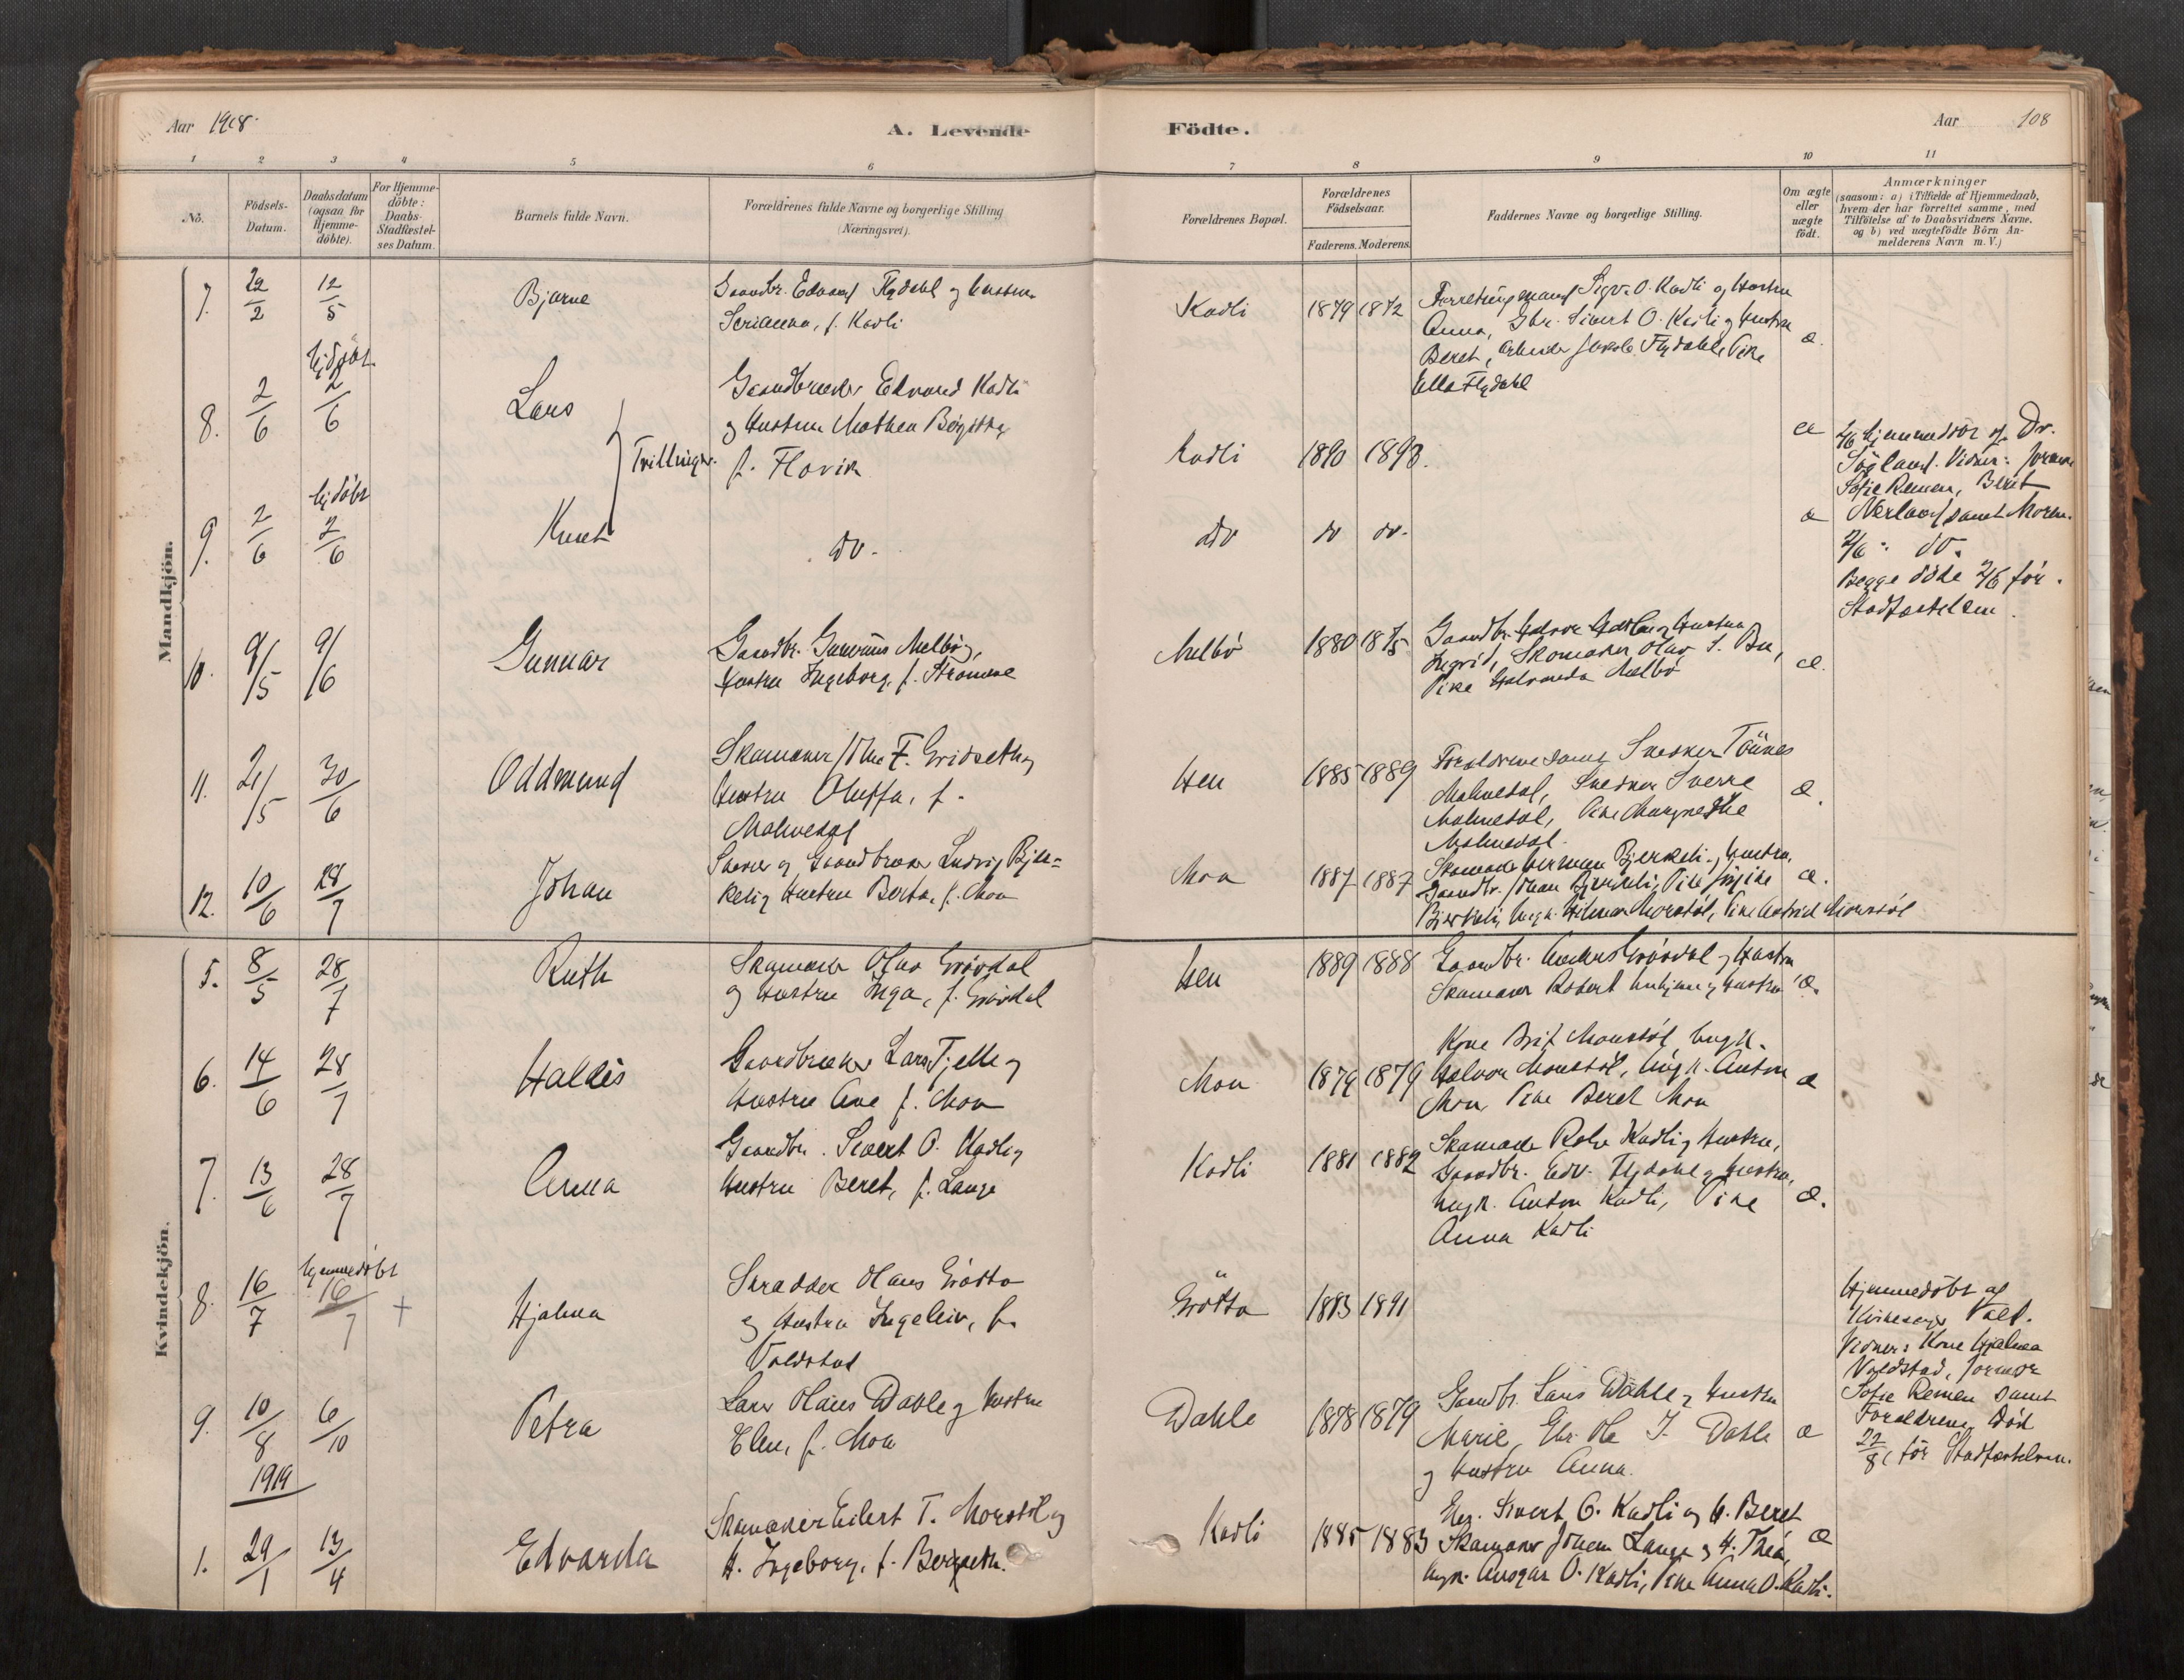 Aar 1918.
A. Levende Födte.
Aar 108
1 2 3 4 5 6 7 8 9 10 11
No.
Födsels-Datum.
Daabsdatum (ogsaa for Hjemme-döbte).
For Hjemme-döbte: Daabs-Stadfæstel-ses Datum.
Barnets fulde Navn.
Forældrenes fulde Navne og borgerlige Stilling (Næringsvei).
Forældrenes Bopæl.
Forældrenes Födselsaar.
Faderens. Moderens.
Faddernes Navne og borgerlige Stilling.
Om ægte eller uægte født.
Anmærkninger
(saasom: a) i Tilfælde af Hjemmedaab,
hvem der har forrettet samme, med
Tilföielse af to Daabsvidners Navne,
og b) ved uægtefödte Börn An-
melderens Navn m. V.)
Mandkjön.
7. 22/2 12/5
Bjarne
Gaardbr. Edvard Flydahl og Hustru
f. Kadli
Kadli
1879 1872
Sigv. O. Kadli og Hustru
Anna, Gbr. Sivert O. Kadli og Hustru
Beret, Arbeider Jakob Flydahl, Pike
Ella Flydahl
æ.
8. 2/6 hjdöbt 2/6
Lars
Tvillinger.
Gaardbruker Edvard Kadli
og Hustru Mathea Bergitha
f. Flovik
Kadli
1890 1893.
æ
2/6 hjemmedöbt af Dr.
Vidner: Jormor
Sofie Remen, Beret
Nerland samt Moren.
9. 2/6 hjdöbt 2/6
Knut
do.
do
do do.
æ
2/6 : do.
Begge döde 2/6 för
Stadfæstelsen.
10. 9/5 9/6
Gunnar
Gaardbr. Melbö og
Hustru Ingeborg, f. Stromme
Melbö
1880 1875
Gaardbr. Halvor og Hustru
Ingrid, Skomaker Olav
Pike Melbö
æ.
11. 21/5 30/6
Oddmund
Skomaker Johan F. Gridseth og
Hustru Oluffa, f.
Malmedal
Hen
1885 1889
Forældrene samt Snekker Tönnes
Malmedal, Snedker Sverre
Malmedal, Pike Magnethe
Malmedal.
æ.
12. 10/6 28/7
Johan
og Gaardbruker Ludvig Bjer-
keli og Hustru Berta, f. Moa
Moa
1887 1887
Skomaker Herman Bjerkeli og Hustru,
Gaardbr. Johan Bjerkeli, Pike
Bjerkeli, Ungk. Hilmar Monstöl, Pike Astrid Monstöl
æ.
Kvindekjön.
5. 8/5 28/7
Ruth
Skomaker Olav Grövdal
og Hustru Inga, f. Grövdal
Hen
1889 1888
Gaardbr. Anders Grövdal og Hustru
Skomaker Robert og Hustru
æ.
6. 14/6 28/7
Haldis
Gaardbruker Lars Tjelle og
Hustru Ane f. Moa
Moa
1879 1879
Kone Brit Monstöl, Ungk.
Halvor Monstöl, Ungk. Anton
Moa, Pike Beret Moa
æ
7. 13/6 28/7
Anna
Gaardbr. Sivert O. Kadli og
Hustru Beret, f. Lange
Kadli
1881 1882
Skomaker Rolv Kadli og Hustru,
Gaardbr. Edv. Flydahl og Hustru,
Ungk. Anton Kadli, Pike
Anna Kadli
æ.
8. 16/7 hjemmedöbt 16/7 +
Hjalma
Skrædder Hans Grötta
og Hustru Ingeleiv, f.
Voldstad
Grötta
1883 1891
Hjemmedöbt af
Kirkesanger
Vidner: Kone Hjalma
Voldstad, Jormor
Sofie Remen samt
Forældrene. Död
22/8 för Stadfæstelsen.
9. 10/8 6/10
Petra
Lars Olaus Dahle og Hustru
Elen, f. Moa
Dahle
1878 1879
Gaardbr. Lars Dahle og Hustru
Marie, Gbr. Ole J. Dahle
og Hustru Anna.
æ
1919
1. 29/1 13/4
Edvarda
Skomaker Eilert T. Monstöl og
H. Ingeborg, f. Bergseth.
Kadli
1885 1883
Gbr. Sivert O. Kadli og H. Beret
Skomaker Johan Lange og H. Thea,
Ungk. Ansgar O. Kadli, Pike Anna O. Kadli.
æ